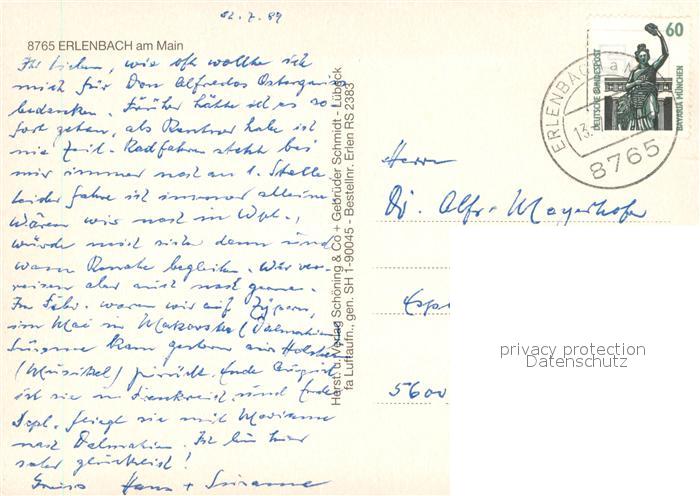 12.7.89
8765 ERLENBACH am Main
Ihr Lieben, wie oft wollte ich
mich für Don Alfredos Ostergruß
bedanken. Früher hätte ich es so
fort getan, als Rentner habe ich
nie Zeit. Radfahren steht bei
mir immer noch an 1. Stelle
leider fahre ich immer alleine
Wären wir noch in Wpt.,
würde mich sicher dann und
wann Renate begleiten. Wir ver-
reisen aber auch noch gerne.
Im Febr. waren wir auf Zypern,
im Mai in Makarska (Dalmatien
Susanne kam gestern aus Holstein
(Musikfe) zurück. Ende August
ist sie in Frankreich und Ende
Sept. fliegt sie mit Marianne
nach Dalmatien. Ich bin hier
sehr glücklich!
Gruß Hans + Susanne
Herst. u. Verlag Schöning & Co + Gebrüder Schmidt - Lübeck
fa Luftaufn., gen. SH 1-90045 - Bestellnr. Erlen RS 2383
60
DEUTSCHE BUNDESPOST
BAVARIA MÜNCHEN
ERLENBACH a MAIN
13.
8765
Herrn
Dr. Alfr. Mayerhofer
5600
privacy protection
Datenschutz